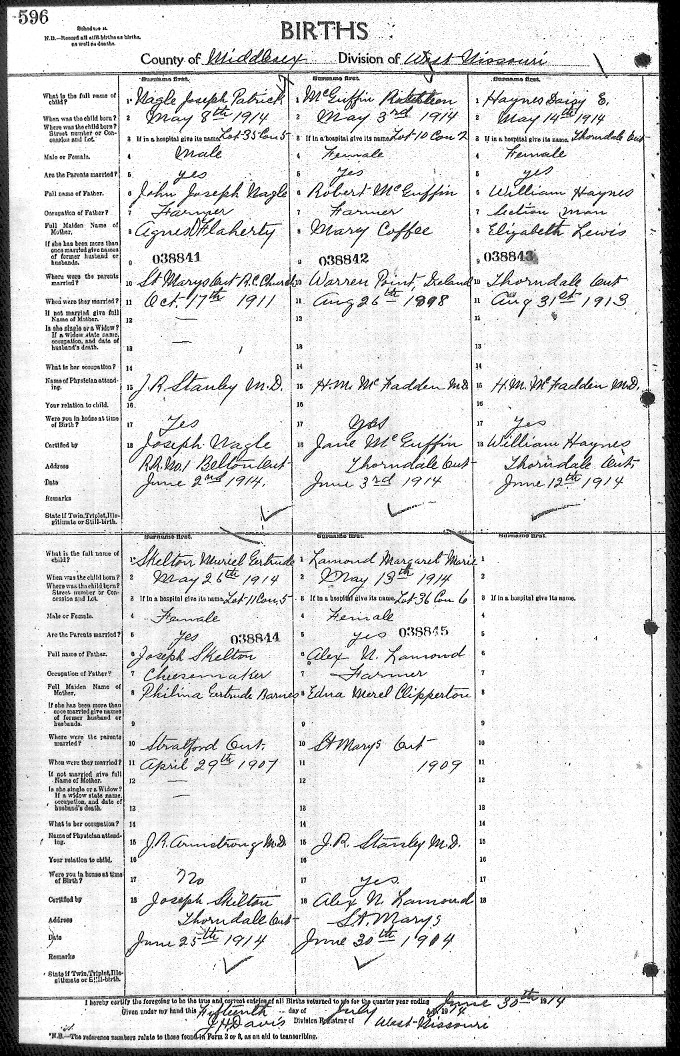 596
Schedule A.
N.B.—Record all still births as births, as well as deaths.
BIRTHS
County of Middlesex Division of West Nissouri
Surname first. Surname first. Surname first.
What is the full name of child? 1 Nagle Joseph Patrick 1 McGuffin 1 Haynes Daisy E.
When was the child born? 2 May 8th 1914 2 May 3rd 1914 2 May 14th 1914
Where was the child born? Street number or Concession and Lot. 3 If in a hospital give its name. Lot 35 Con 5 3 If in a hospital give its name. Lot 10 Con 2 3 If in a hospital give its name. Thorndale Ont
Male or Female. 4 Male 4 Female 4 Female
Are the Parents married? 5 yes 5 yes 5 yes
Full name of Father. 6 John Joseph Nagle 6 Robert McGuffin 6 William Haynes
Occupation of Father? 7 Farmer 7 Farmer 7 Section Man
Full Maiden Name of Mother. 8 Agnes Flaherty 8 Mary Coffee 8 Elizabeth Lewis
If she has been more than once married give names of former husband or husbands. 9 038841 9 038842 9 038843
Where were the parents married? 10 St Marys Ont R.C. Church 10 Warren Point, Ireland 10 Thorndale Ont
When were they married? 11 Oct. 17th 1911 11 Aug 26th 1898 11 Aug 31st 1913
If not married give full Name of Mother. 12 — 12 12
Is she single or a Widow? If a widow state name, occupation, and date of husband's death. 13 — 13 13
What is her occupation? 14 14 14
Name of Physician attending. 15 J.R. Stanley M.D. 15 H.M. McFadden M.D 15 H.M. McFadden M.D.
Your relation to child. 16 16 16
Were you in house at time of Birth? 17 Yes 17 Yes 17 yes
Certified by 18 Joseph Nagle 18 Jane McGuffin 18 William Haynes
Address R.R. No. 1 Belton Ont Thorndale Ont Thorndale Ont.
Date June 2nd 1914. June 3rd 1914 June 12th 1914
Remarks
State if Twin, Triplet, Illegitimate or Still-birth.
Surname first. Surname first. Surname first.
What is the full name of child? 1 Skelton Muriel Gertrude 1 Lamond Margaret Marie 1
When was the child born? 2 May 26th 1914 2 May 13th 1914 2
Where was the child born? Street number or Concession and Lot. 3 If in a hospital give its name. Lot 11 Con. 5 3 If in a hospital give its name. Lot 36 Con 6 3 If in a hospital give its name.
Male or Female. 4 Female 4 Female 4
Are the Parents married? 5 yes 038844 5 yes 038845 5
Full name of Father. 6 Joseph Skelton 6 Alex N. Lamond 6
Occupation of Father? 7 Cheesemaker 7 Farmer 7
Full Maiden Name of Mother. 8 Philina Gertrude Barnes 8 Edna Merel Clipperton 8
If she has been more than once married give names of former husband or husbands. 9 9 9
Where were the parents married? 10 Stratford Ont. 10 St Marys Ont 10
When were they married? 11 April 29th 1907 11 1909 11
If not married give full Name of Mother. 12 — 12 12
Is she single or a Widow? If a widow state name, occupation, and date of husband's death. 13 — 13 13
What is her occupation? 14 14 14
Name of Physician attending. 15 J.R. Armstrong M.D. 15 J.R. Stanley M.D. 15
Your relation to child. 16 16 16
Were you in house at time of Birth? 17 No 17 yes 17
Certified by 18 Joseph Skilton 18 Alex N Lamond 18
Address Thorndale Ont St. Marys
Date June 25th 1914 June 30th 1904
Remarks
State if Twin, Triplet, Illegitimate or Still-birth.
I hereby certify the foregoing to be the true and correct entries of all Births returned to me for the quarter year ending June 30th 1914
Given under my hand this Fifteenth day of July A.D. 1914
Davis Division Registrar of West Nissouri
*N.B.—The reference numbers relate to those found in Form 2 or 3, as an aid to transcribing.